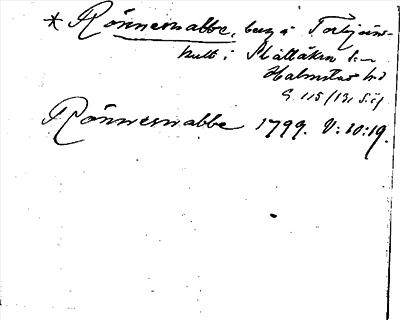 * Rönnesnabbe, berg i Torbjörns-
hult i Slättåkra Sn
Halmstads hd
S. 115/131 Sij
Rönnesnabbe 1799. V:10:19.